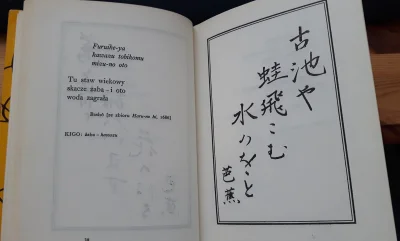 Furuike-ya
kawazu tobikomu
mizu-no oto
Tu staw wiekowy
skacze żaba - i oto
woda zagrała
Bashō [ze zbioru Haru-no hi, 1686]
KIGO: żaba - kawazu
古池や
蛙飛こむ
水のをと
芭蕉